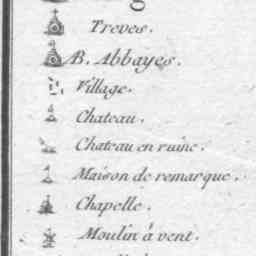 Treves.
B. Abbayes.
Village.
Chateau.
Chateau en ruine.
Maison de remarque.
Chapelle.
Moulin á vent.